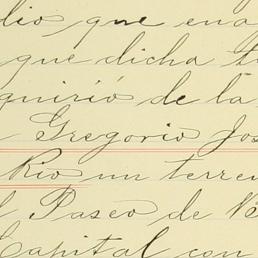 dio que ena
que dicha t
quirió de la
Gregorio Jos
Rio un terre
l Paseo de
Capital con